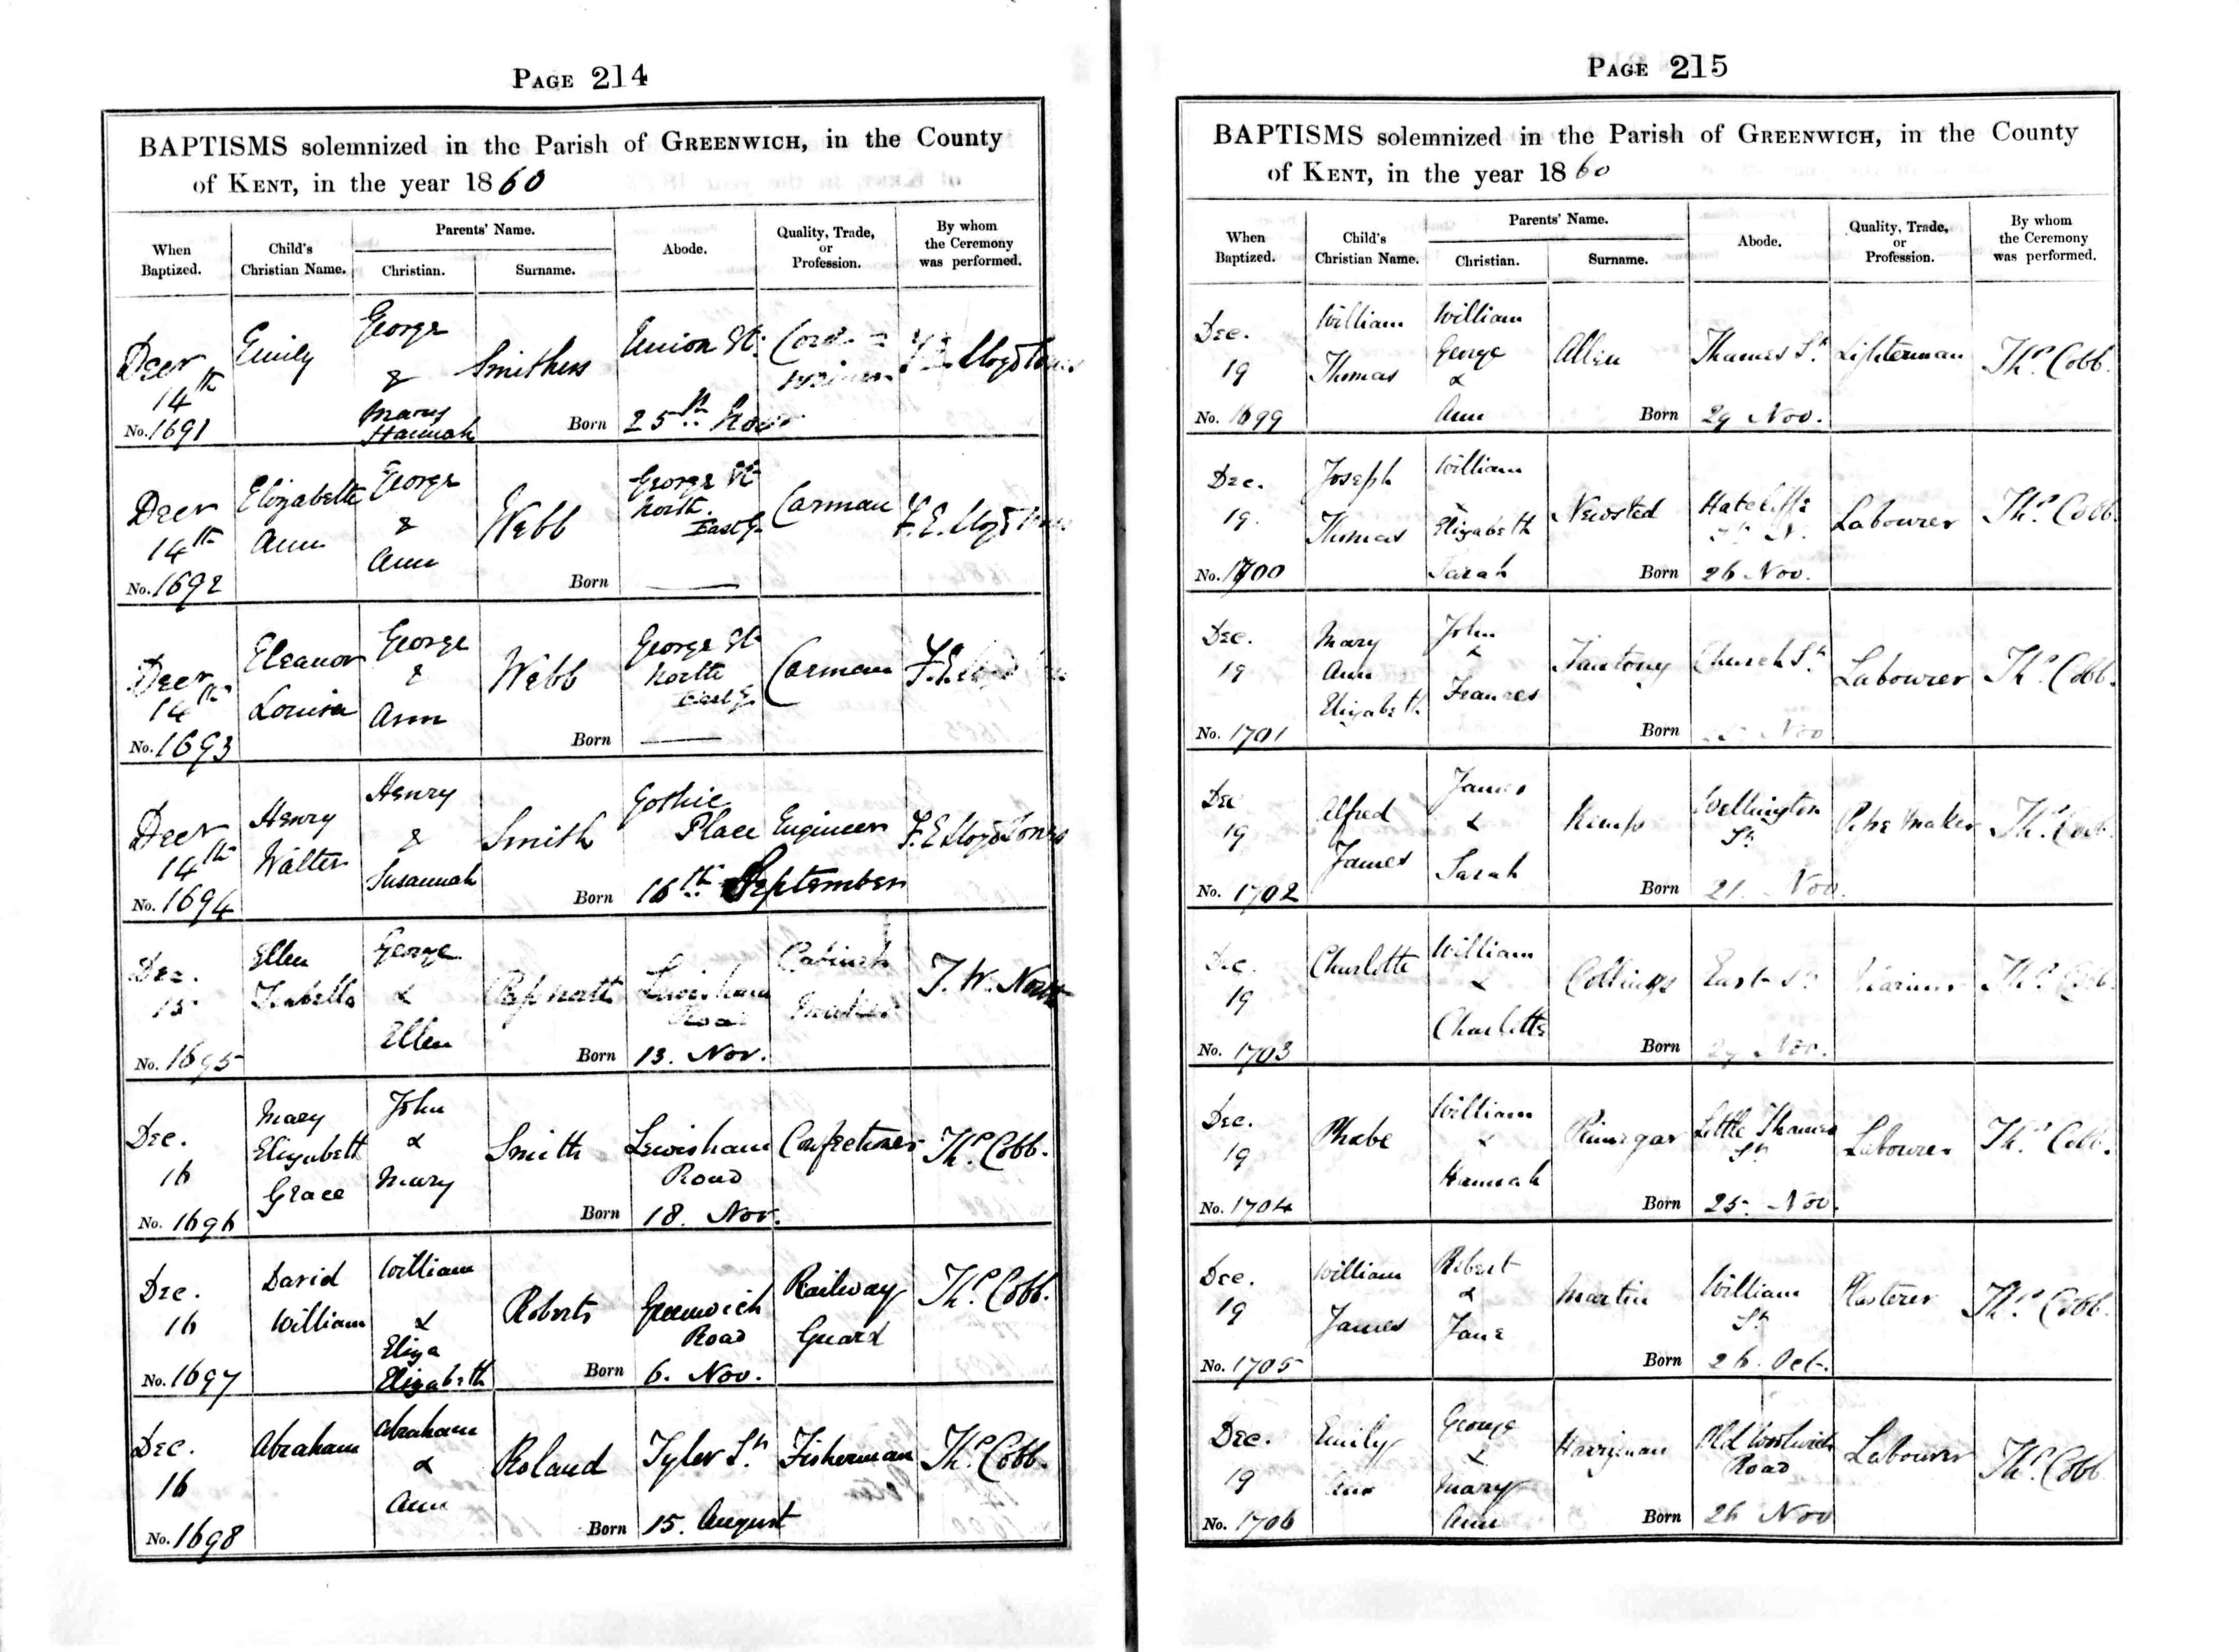 PAGE 214
BAPTISMS solemnized in the Parish of GREENWICH, in the County
of KENT, in the year 1860
When Baptized.
Child's Christian Name.
Parents' Name.
Christian.
Surname.
Abode.
Quality, Trade, or Profession.
By whom the Ceremony was performed.
Decr 14th
No. 1691
Emily
George
&
Mary
Hannah
Smithers
Born
Union St.
25th Novr
Decr 14th
No. 1692
Elizabeth
Ann
George
&
Ann
Webb
Born
George St
North
East G.
Carman
F. E. Lloyd Jones
Decr 14th
No. 1693
Eleanor
Louisa
George
&
Ann
Webb
Born
George St
North
East G.
Carman
F. E. Lloyd Jones
Decr 14th
No. 1694
Henry
Walter
Henry
&
Susannah
Smith
Born
Gothic
Place
16th September
Engineer
F. E. Lloyd Jones
Dec.
15
No. 1695
Ellen
Isabella
George
&
Ellen
Born
Lewisham
Road
13. Nov.
Cabinet
Maker
Dec.
16
No. 1696
Mary
Elizabeth
Grace
John
&
Mary
Smith
Born
Lewisham
Road
18. Nov.
Confectioner
Thos. Cobb.
Dec.
16
No. 1697
David
William
William
&
Eliza
Elizabeth
Roberts
Born
Greenwich
Road
6. Nov.
Railway
Guard
Thos. Cobb.
Dec.
16
No. 1698
Abraham
Abraham
&
Ann
Roland
Born
Tyler St.
15. August
Fisherman
Thos. Cobb.
PAGE 215
BAPTISMS solemnized in the Parish of GREENWICH, in the County
of KENT, in the year 1860
When Baptized.
Child's Christian Name.
Parents' Name.
Christian.
Surname.
Abode.
Quality, Trade, or Profession.
By whom the Ceremony was performed.
Dec.
19
No. 1699
William
Thomas
William
George
&
Ann
Allen
Born
Thames St.
29 Nov.
Lighterman
Thos. Cobb.
Dec.
19.
No. 1700
Joseph
Thomas
William
&
Elizabeth
Sarah
Newsted
Born
Hatcliffe
26 Nov.
Labourer
Thos. Cobb.
Dec.
19
No. 1701
Mary
Ann
Elizabeth
John
&
Frances
Born
Church St.
Nov
Labourer
Thos. Cobb.
Dec
19
No. 1702
Alfred
James
James
&
Sarah
Kemp
Born
Wellington
St.
21. Nov.
Pipe Maker
Thos. Cobb.
Dec.
19
No. 1703
Charlotte
William
&
Charlotte
Collings
Born
East St
Nov.
Mariner
Thos. Cobb.
Dec.
19
No. 1704
Phebe
William
&
Hannah
Born
Little Thames
St.
25. Nov.
Labourer
Thos. Cobb.
Dec.
19
No. 1705
William
James
Robert
&
Jane
Martin
Born
William
St.
26. Oct.
Plasterer
Thos. Cobb.
Dec.
19
No. 1706
Emily
Ann
George
&
Mary
Ann
Harryman
Born
Old Woolwich
Road
26 Nov
Labourer
Thos. Cobb